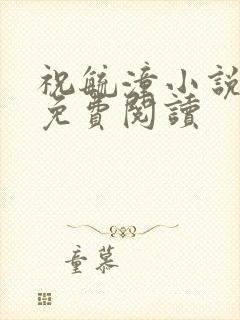 祝毓潼小說
免費閱讀
童慕